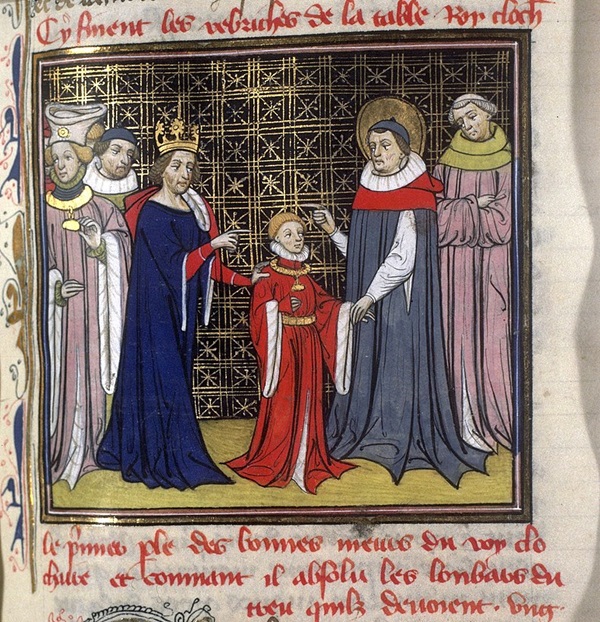 Cy finent les rebriches de la table Roy cloth
le pmier ple des bonnes meurs du roy clo
thaire et comment il absolu les lonbars du
treu quilz devoient . Vng